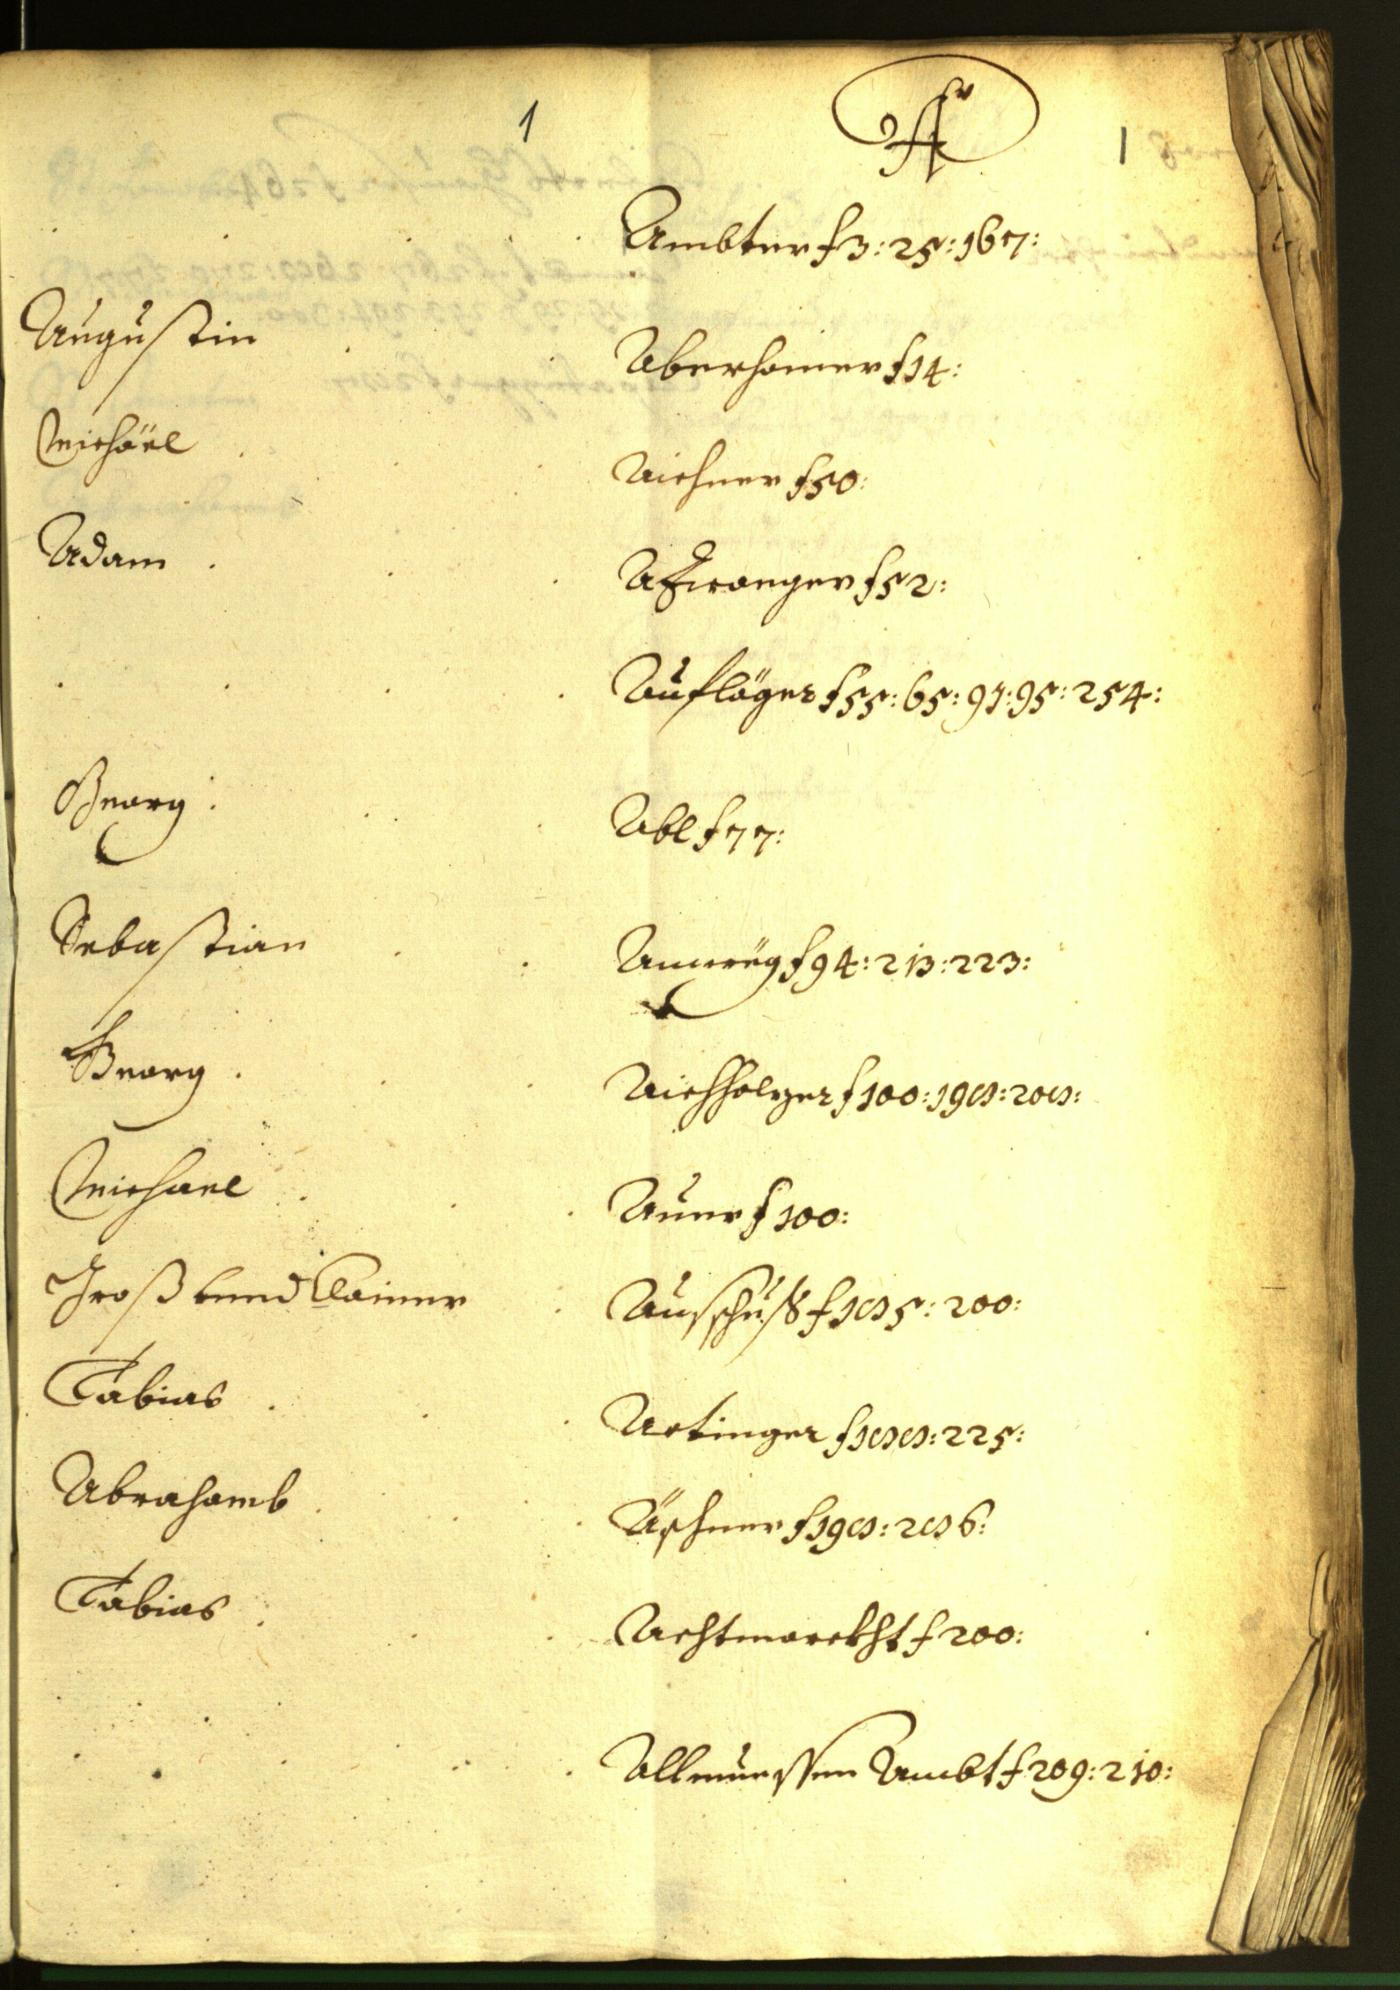 1
A
1
Ambter f 3: 25: 167:
Augustin Aberhamer f 14:
Michäel Aichner f 50:
Adam Afwanger f 52:
Aufläger f 55: 65: 91: 95: 254:
Georg: Abl f 77:
Sebastian Annreÿ f 94: 213: 223:
Georg Aichholzer f 100: 198: 208:
Michael Auer f 100:
Groß vnnd Clainer Ausschuß f 185: 200:
Tobias Artinger f 188: 225:
Abrahamb Äschner f 198: 286:
Tobias Achtmarckht f 200:
Allmuessen Ambt f 209: 210: